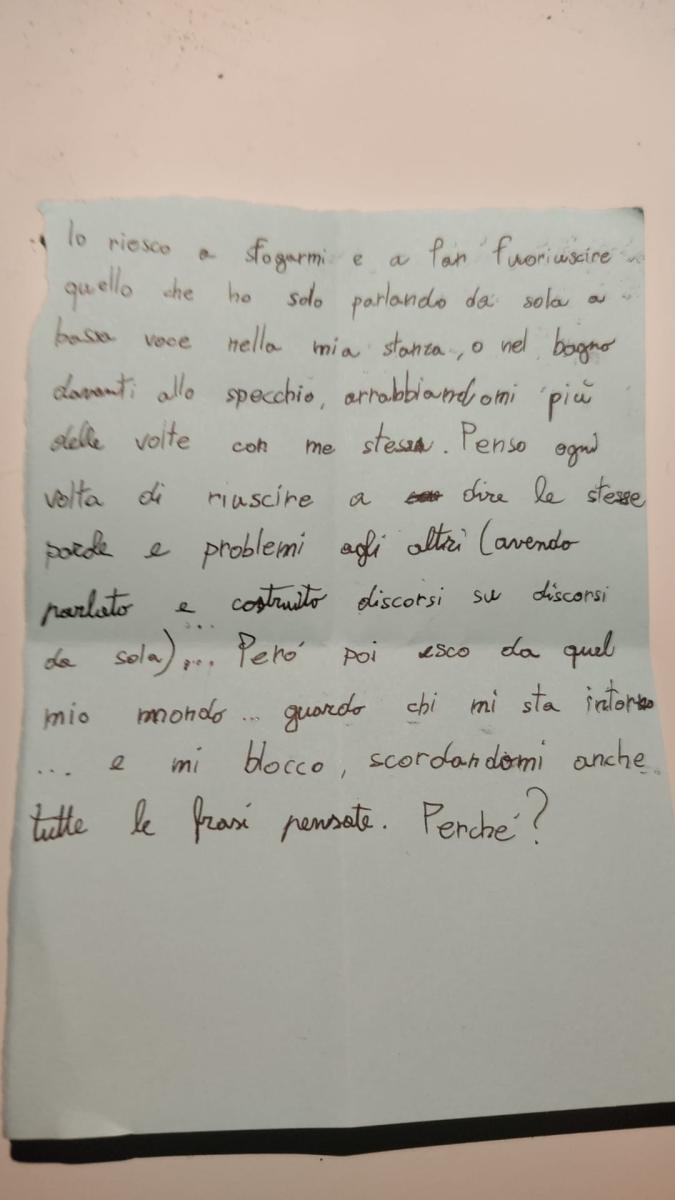 Io riesco a sfogarmi e a far fuoriuscire
quello che ho solo parlando da sola a
bassa voce nella mia stanza, o nel bagno
davanti allo specchio, arrabbiandomi più
delle volte con me stessa. Penso ogni
volta di riuscire a dire le stesse
parole e problemi agli altri (avendo
parlato e costruito discorsi su discorsi
da sola)... Però poi esco da quel
mio mondo... guardo chi mi sta intorno
... e mi blocco, scordandomi anche
tutte le frasi pensate. Perché?